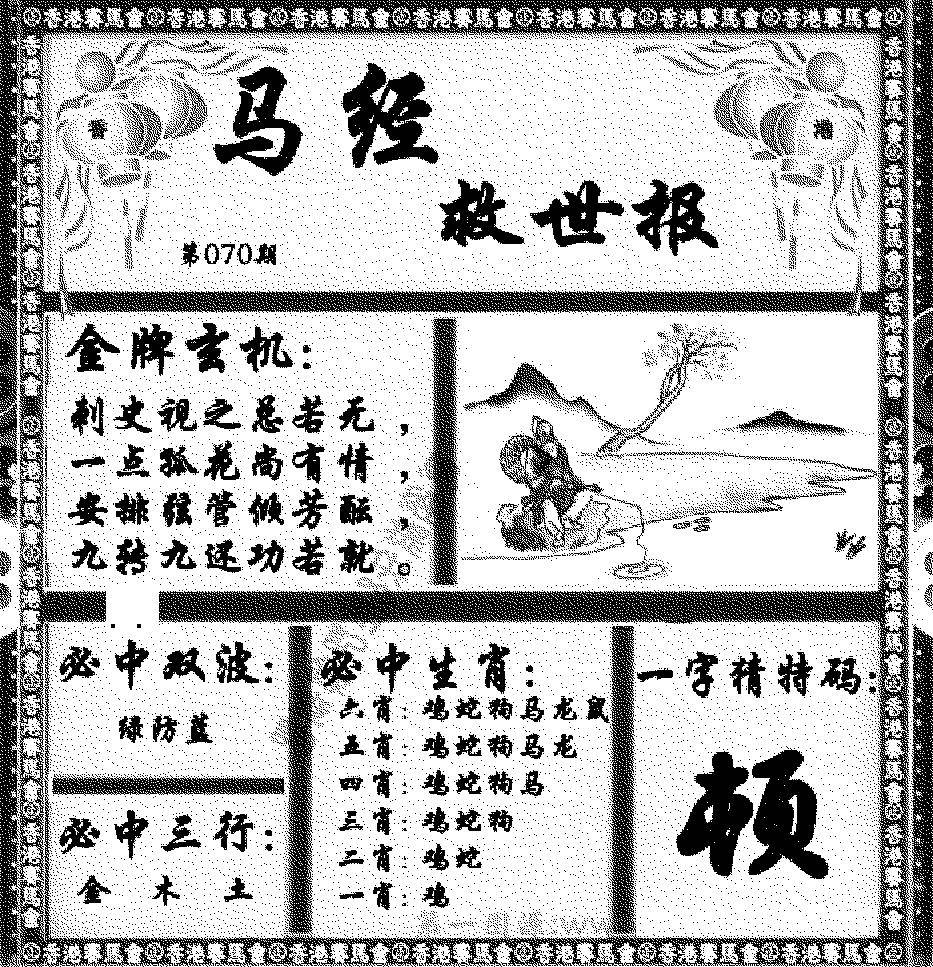 香港賽馬會香港賽馬會香港賽馬會香港賽馬會香港賽馬會香港賽馬會香港賽馬會
香
港
马经
救世报
第070期
金牌玄机:
刺史视之总若无,
一点孤花尚有情,
安排弦管倾芳酝,
九转九还功若就。
必中双波:
绿防蓝
必中三行:
金 木 土
必中生肖:
六肖: 鸡蛇狗马龙鼠
五肖: 鸡蛇狗马龙
四肖: 鸡蛇狗马
三肖: 鸡蛇狗
二肖: 鸡蛇
一肖: 鸡
一字猜特码:
顿
香港賽馬會香港賽馬會香港賽馬會香港賽馬會香港賽馬會香港賽馬會香港賽馬會